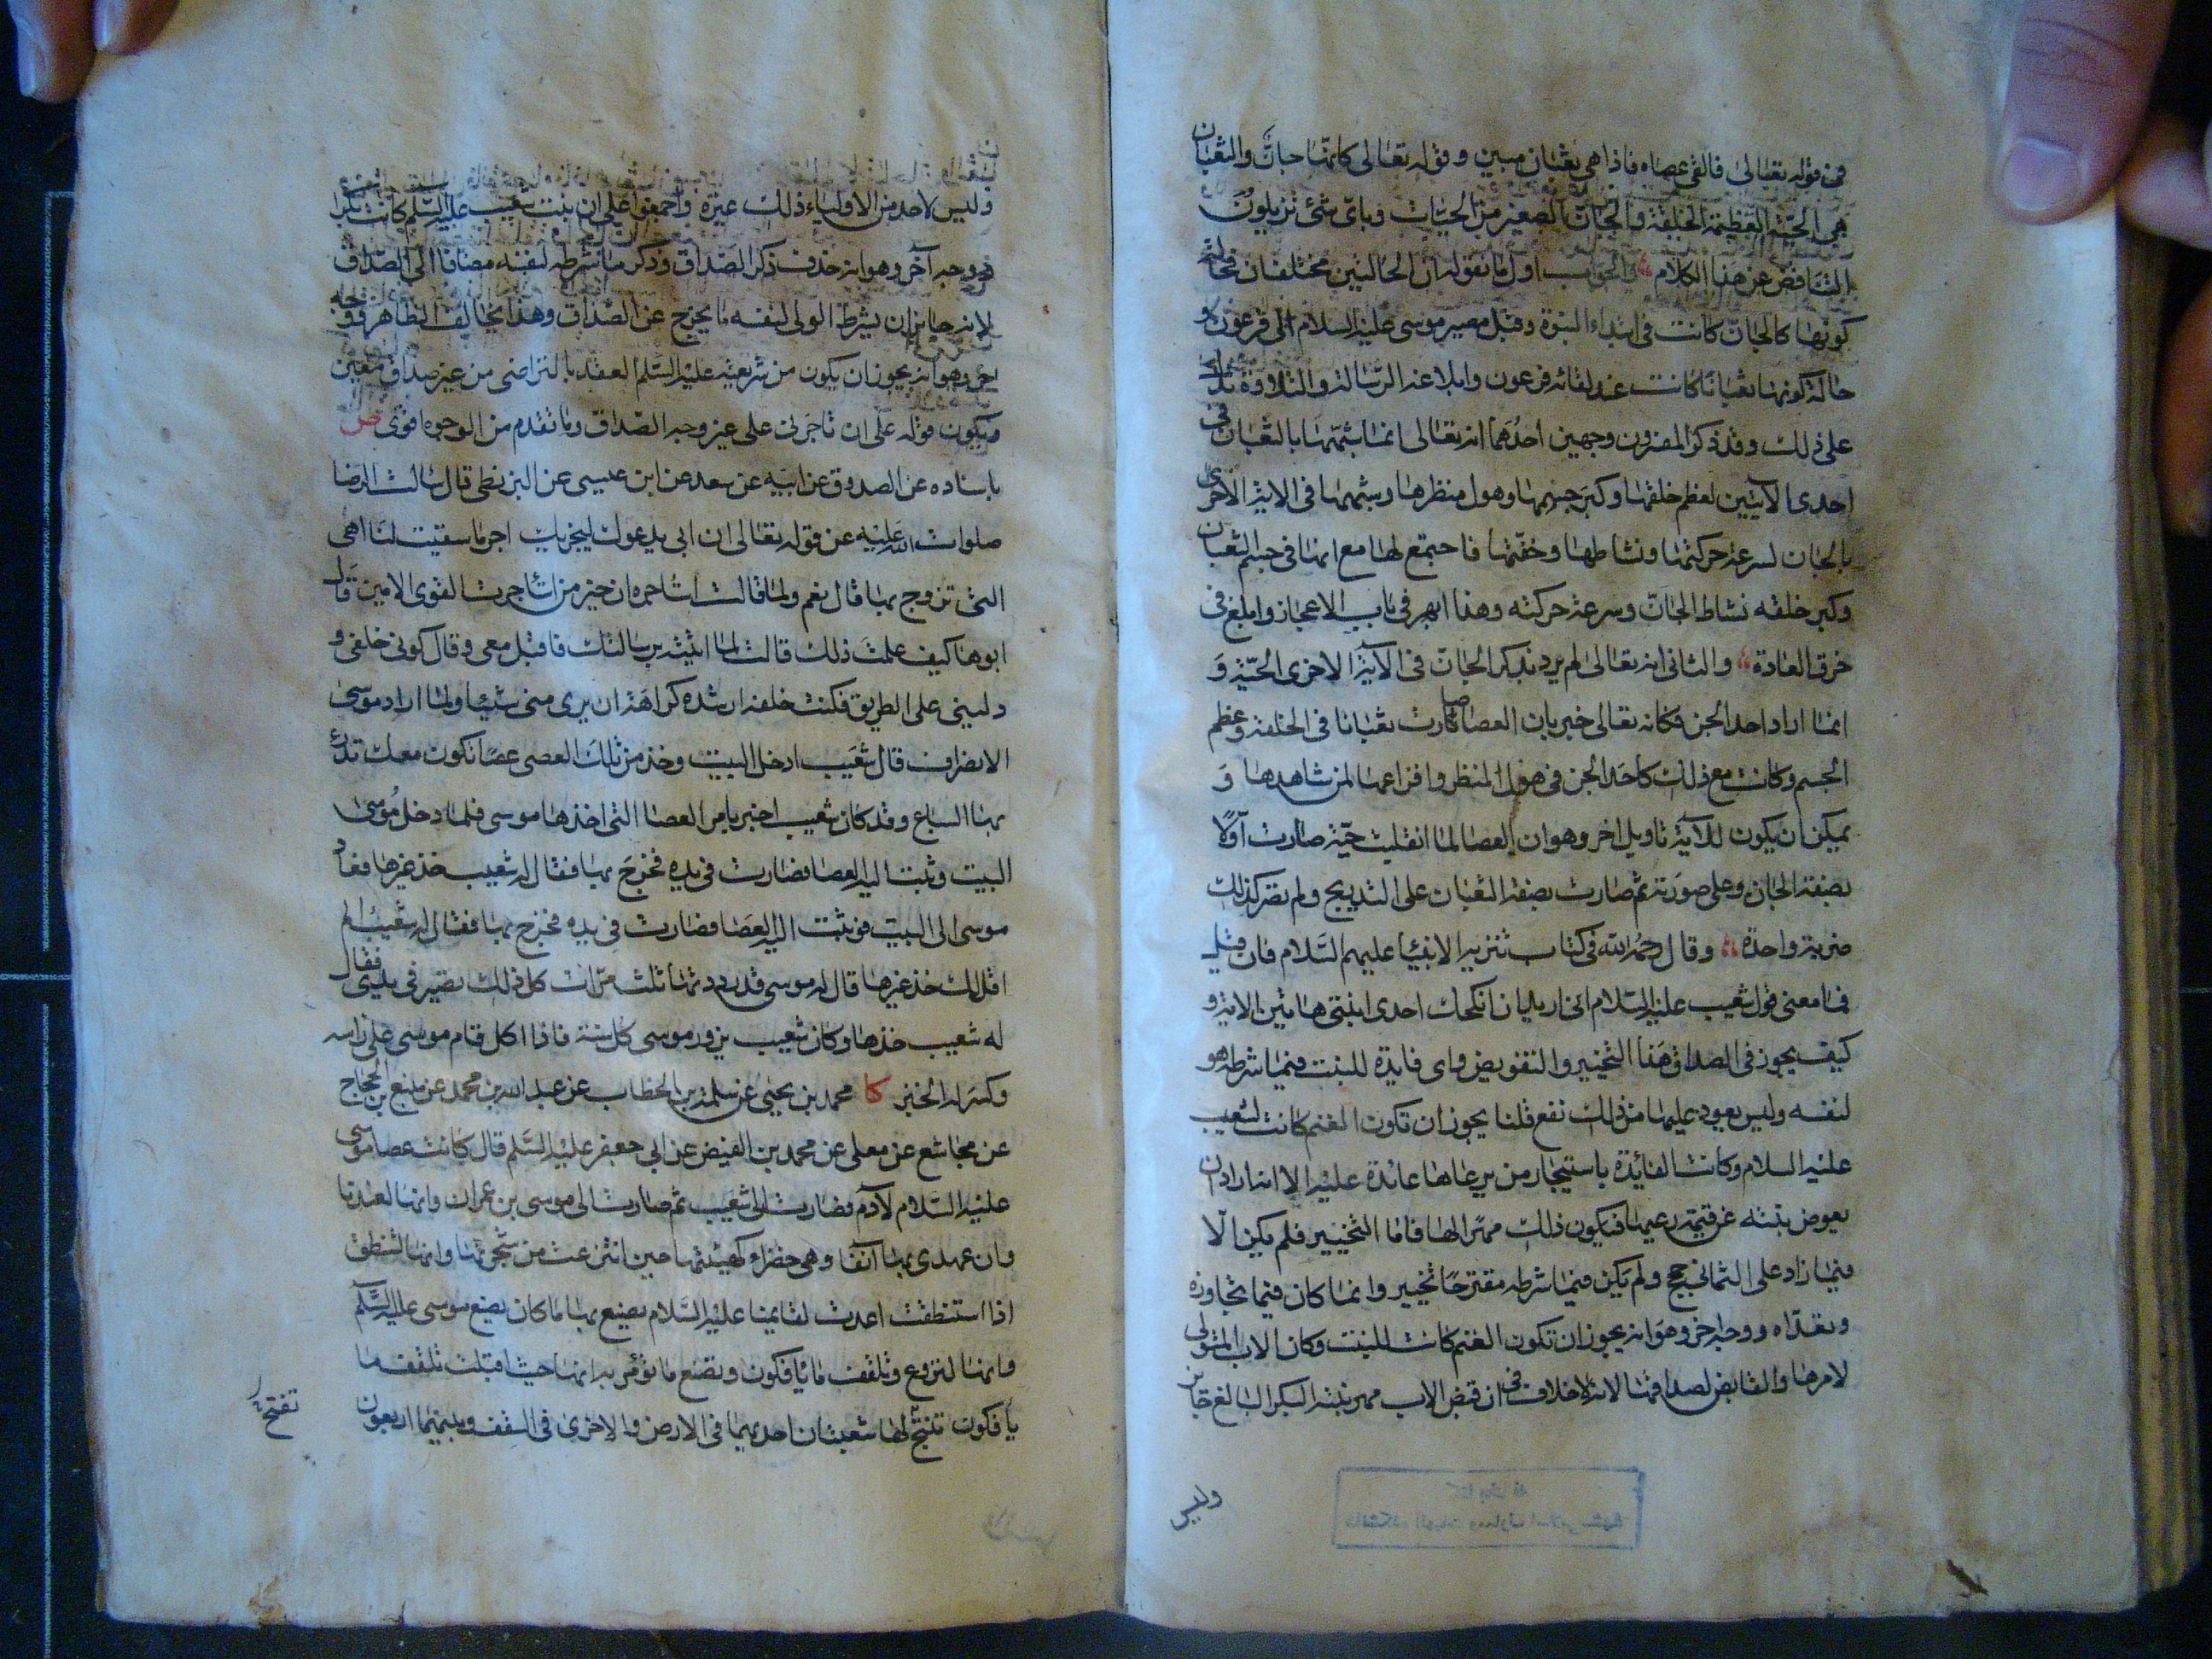 في قوله تعالى فالقى عصاه فاذا هي ثعبان مبين وقوله تعالى كانها جان والثعبان
هي الحية العظيمة الخلقة والجان الصغير من الحيات وباى شئ تزيلون
التناقض عن هذا الكلام الجواب اول ما نقوله ان الحالتين مختلفتان فحالة
كونها كالجان كانت في ابتداء النبوة وقبل مصير موسى عليه السلام الى فرعون و
حالة كونها ثعبانا كانت عند لقائه فرعون وابلاغه الرسالة والتلاوة تدل
على ذلك وقد ذكر المفسرون وجهين احدهما انه تعالى انما شبهها بالثعبان في
احدى الآيتين لعظم خلقها وكبر جسمها وهول منظرها وشبهها في الاية الاخرى
بالجان لسرعة حركتها ونشاطها وخفتها فاجتمع لها مع انها في جسم الثعبان
وكبر خلقه نشاط الجان وسرعة حركته وهذا ابهر في باب الاعجاز وابلغ في
خرق العادة والثاني انه تعالى لم يرد بذكر الجان في الآية الاخرى الحية و
انما اراد احد الجن فكانه تعالى خبر بان العصا صارت ثعبانا في الخلقة وعظم
الجسم وكانت مع ذلك كاحد الجن في هول المنظر وافزاعها لمن شاهدها و
يمكن ان يكون للآية تاويل اخر وهو ان العصا لما انقلبت حية صارت اولا
بصفة الجان وعلى صورته ثم صارت بصفة الثعبان على التدريج ولم تصر كذلك
ضربة واحدة وقال رحمه الله في كتاب تنزيه الانبياء عليهم السلام فان قيل
فما معنى قول شعيب عليه السلام اني اريد ان انكحك احدى ابنتي هاتين الاية و
كيف يجوز في الصداق هذا التخيير والتفويض واى فايدة للبنت فيما شرطه هو
لنفسه وليس يعود عليها من ذلك نفع قلنا يجوز ان تكون الغنم كانت لشعيب
عليه السلام وكانت الفائدة باستيجار من يرعاها عائدة عليه الا انه اراد ان
يعوض بنته عن قيمة رعيها فيكون ذلك مهرا لها فاما التخيير فلم يكن الا
فيما زاد على الثماني حجج ولم يكن فيما شرطه مقترحا تخيير وانما كان فيما تجاوزه
وتعداه ووجه اخر وهو انه يجوز ان تكون الغنم كانت للبنت وكان الاب المتولى
لامرها والقابض لصداقها لانه لا خلاف في ان قبض الاب مهر بنته البكر البالغ جايز
وليس
وليس لاحد من الاولياء ذلك غيره واجمعوا على ان بنت شعيب عليه السلم كانت بكرا
ووجه آخر وهو انه حذف ذكر الصداق وذكر ما شرطه لنفسه مضافا الى الصداق
لانه جايز ان يشرط الولى لنفسه ما يخرج عن الصداق وهذا يخالف الظاهر ووجه
اخر وهو انه يجوز ان يكون من شريعته عليه السلم العقد بالتراضى من غير صداق معين
ويكون قوله على ان تاجرني على غير وجه الصداق وما تقدم من الوجوه اقوى ص
باسناده عن الصدوق عن ابيه عن سعد عن ابن عيسى عن البزنطي قال سالت الرضا
صلوات الله عليه عن قوله تعالى ان ابي يدعوك ليجزيك اجر ما سقيت لنا اهى
التى تزوج بها قال نعم ولما قالت استاجره ان خير من استاجرت القوى الامين قال
ابوها كيف علمت ذلك قالت لما اتيته برسالتك فاقبل معى وقال كونى خلفى و
دليني على الطريق فكنت خلفه ارشده كراهة ان يرى منى شيئا ولما اراد موسى
الانصراف قال شعيب ادخل البيت وخذ من تلك العصى عصا تكون معك تدرء
بها السباع وقد كان شعيب اخبر بامر العصا التى اخذها موسى فلما دخل موسى
البيت وثبت اليه العصا فصارت في يده فخرج بها فقال له شعيب خذ غيرها فعاد
موسى الى البيت فوثبت اليه العصا فصارت في يده فخرج بها فقال له شعيب الم
اقل لك خذ غيرها قال له موسى قد رددتها ثلث مرات كل ذلك تصير في يدى فقال
له شعيب خذها وكان شعيب يزور موسى كل سنة فاذا اكل قام موسى على راسه
وكسر له الخبز كا محمد بن يحيى عن سلمة بن الخطاب عن عبد الله بن محمد عن منيع بن الحجاج
عن مجاشع عن معلى عن محمد بن الفيض عن ابي جعفر عليه السلم قال كانت عصا موسى
عليه السلام لآدم فصارت الى شعيب ثم صارت الى موسى بن عمران وانها لعندنا
وان عهدى بها آنفا وهى خضراء كهيئتها حين انتزعت من شجرتها وانها لتنطق
اذا استنطقت اعدت لقائمنا عليه السلام يصنع بها ما كان يصنع موسى عليه السلم
وانها لتروع وتلقف ما يافكون وتصنع ما تؤمر به انها حيث اقبلت تلقف ما
يأفكون تفتح لها شعبتان احديهما في الارض والاخرى في السقف وبينهما اربعون
تفتح